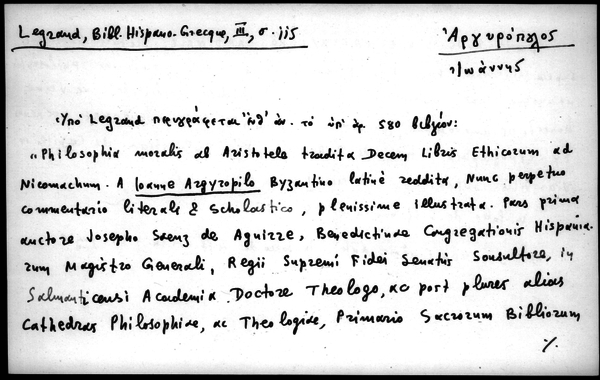 Legrand, Bibl. Hispano-Grecque, III, σ. 115
Ἀργυρόπουλος
Ἰωάννης
Ὑπὸ Legrand περιγράφεται ἐνθ' ἀν. τὸ ὑπ' ἀρ. 580 βιβλίον:
"Philosophia moralis ab Aristotele tradita Decem Libris Ethicorum ad
Nicomachum. A Ioanne Argyropilo Byzantino latinè reddita, Nunc perpetuo
commentario literali & Scholastico, plenissime illustrata. Pars prima
auctore Josepho Saenz de Aguirre, Benedictinae Congregationis Hispania-
rum Magistro Generali, Regii Supremi Fidei Senatis Consultore, in
Salmanticensi Academia Doctore Theologo, ac post plures alias
Cathedras Philosophiae, ac Theologiae, Primario Sacrorum Bibliorum
./.